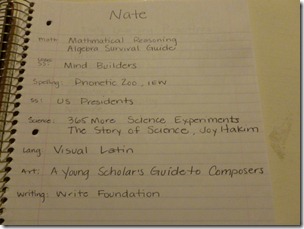 Nate
Math: Mathmatical Reasoning
Algebra Survival Guide
Logic: Mind Builders
Spelling: Phonetic Zoo, IEW
SS: US Presidents
Science: 365 More Science Experiments
The Story of Science, Joy Hakim
Lang: Visual Latin
Art: A Young Scholar's Guide to Composers
Writing: Write Foundation